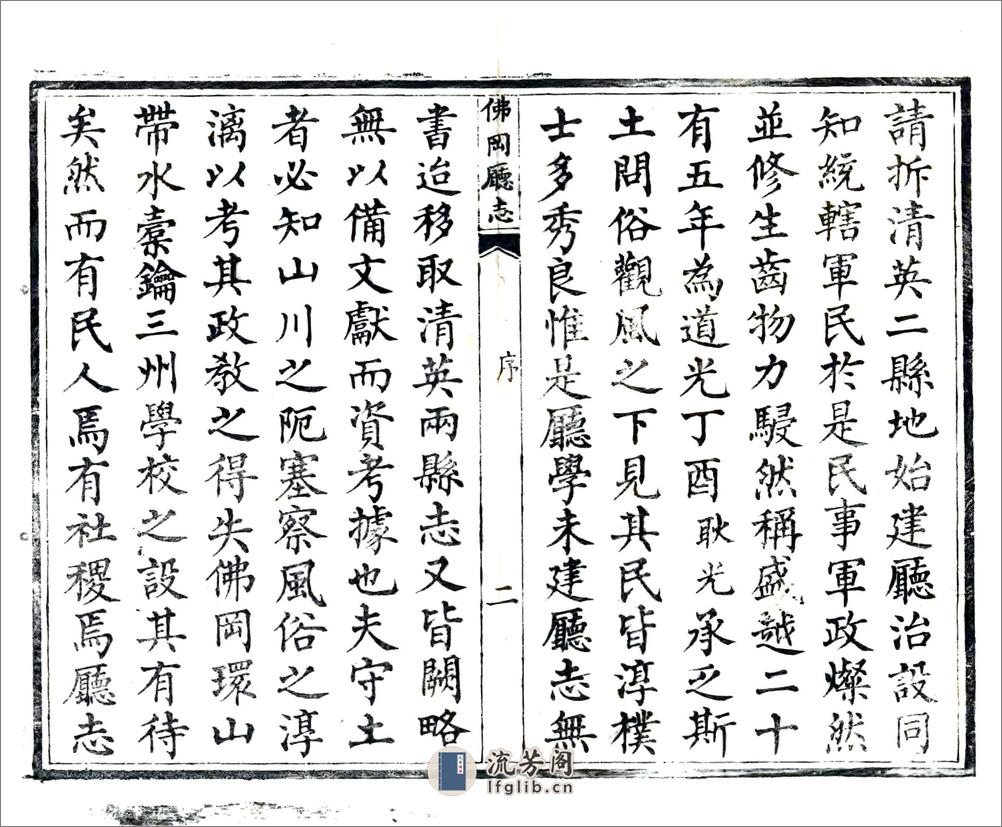 請拆清英二縣地始建廳治設同
知統轄軍民於是民事軍政燦然
並修生齒物力駸然稱盛越二十
有五年為道光丁酉耿光承乏斯
土問俗觀風之下見其民皆淳樸
士多秀良惟是廳學未建廳志無
佛岡廳志
序
二
書迨移取清英兩縣志又皆闕略
無以備文獻而資考據也夫守土
者必知山川之阨塞察風俗之淳
漓以考其政教之得失佛岡環山
帶水橐鑰三州學校之設其有待
矣然而有民人焉有社稷焉廳志
流芳阁
lfglib.cn